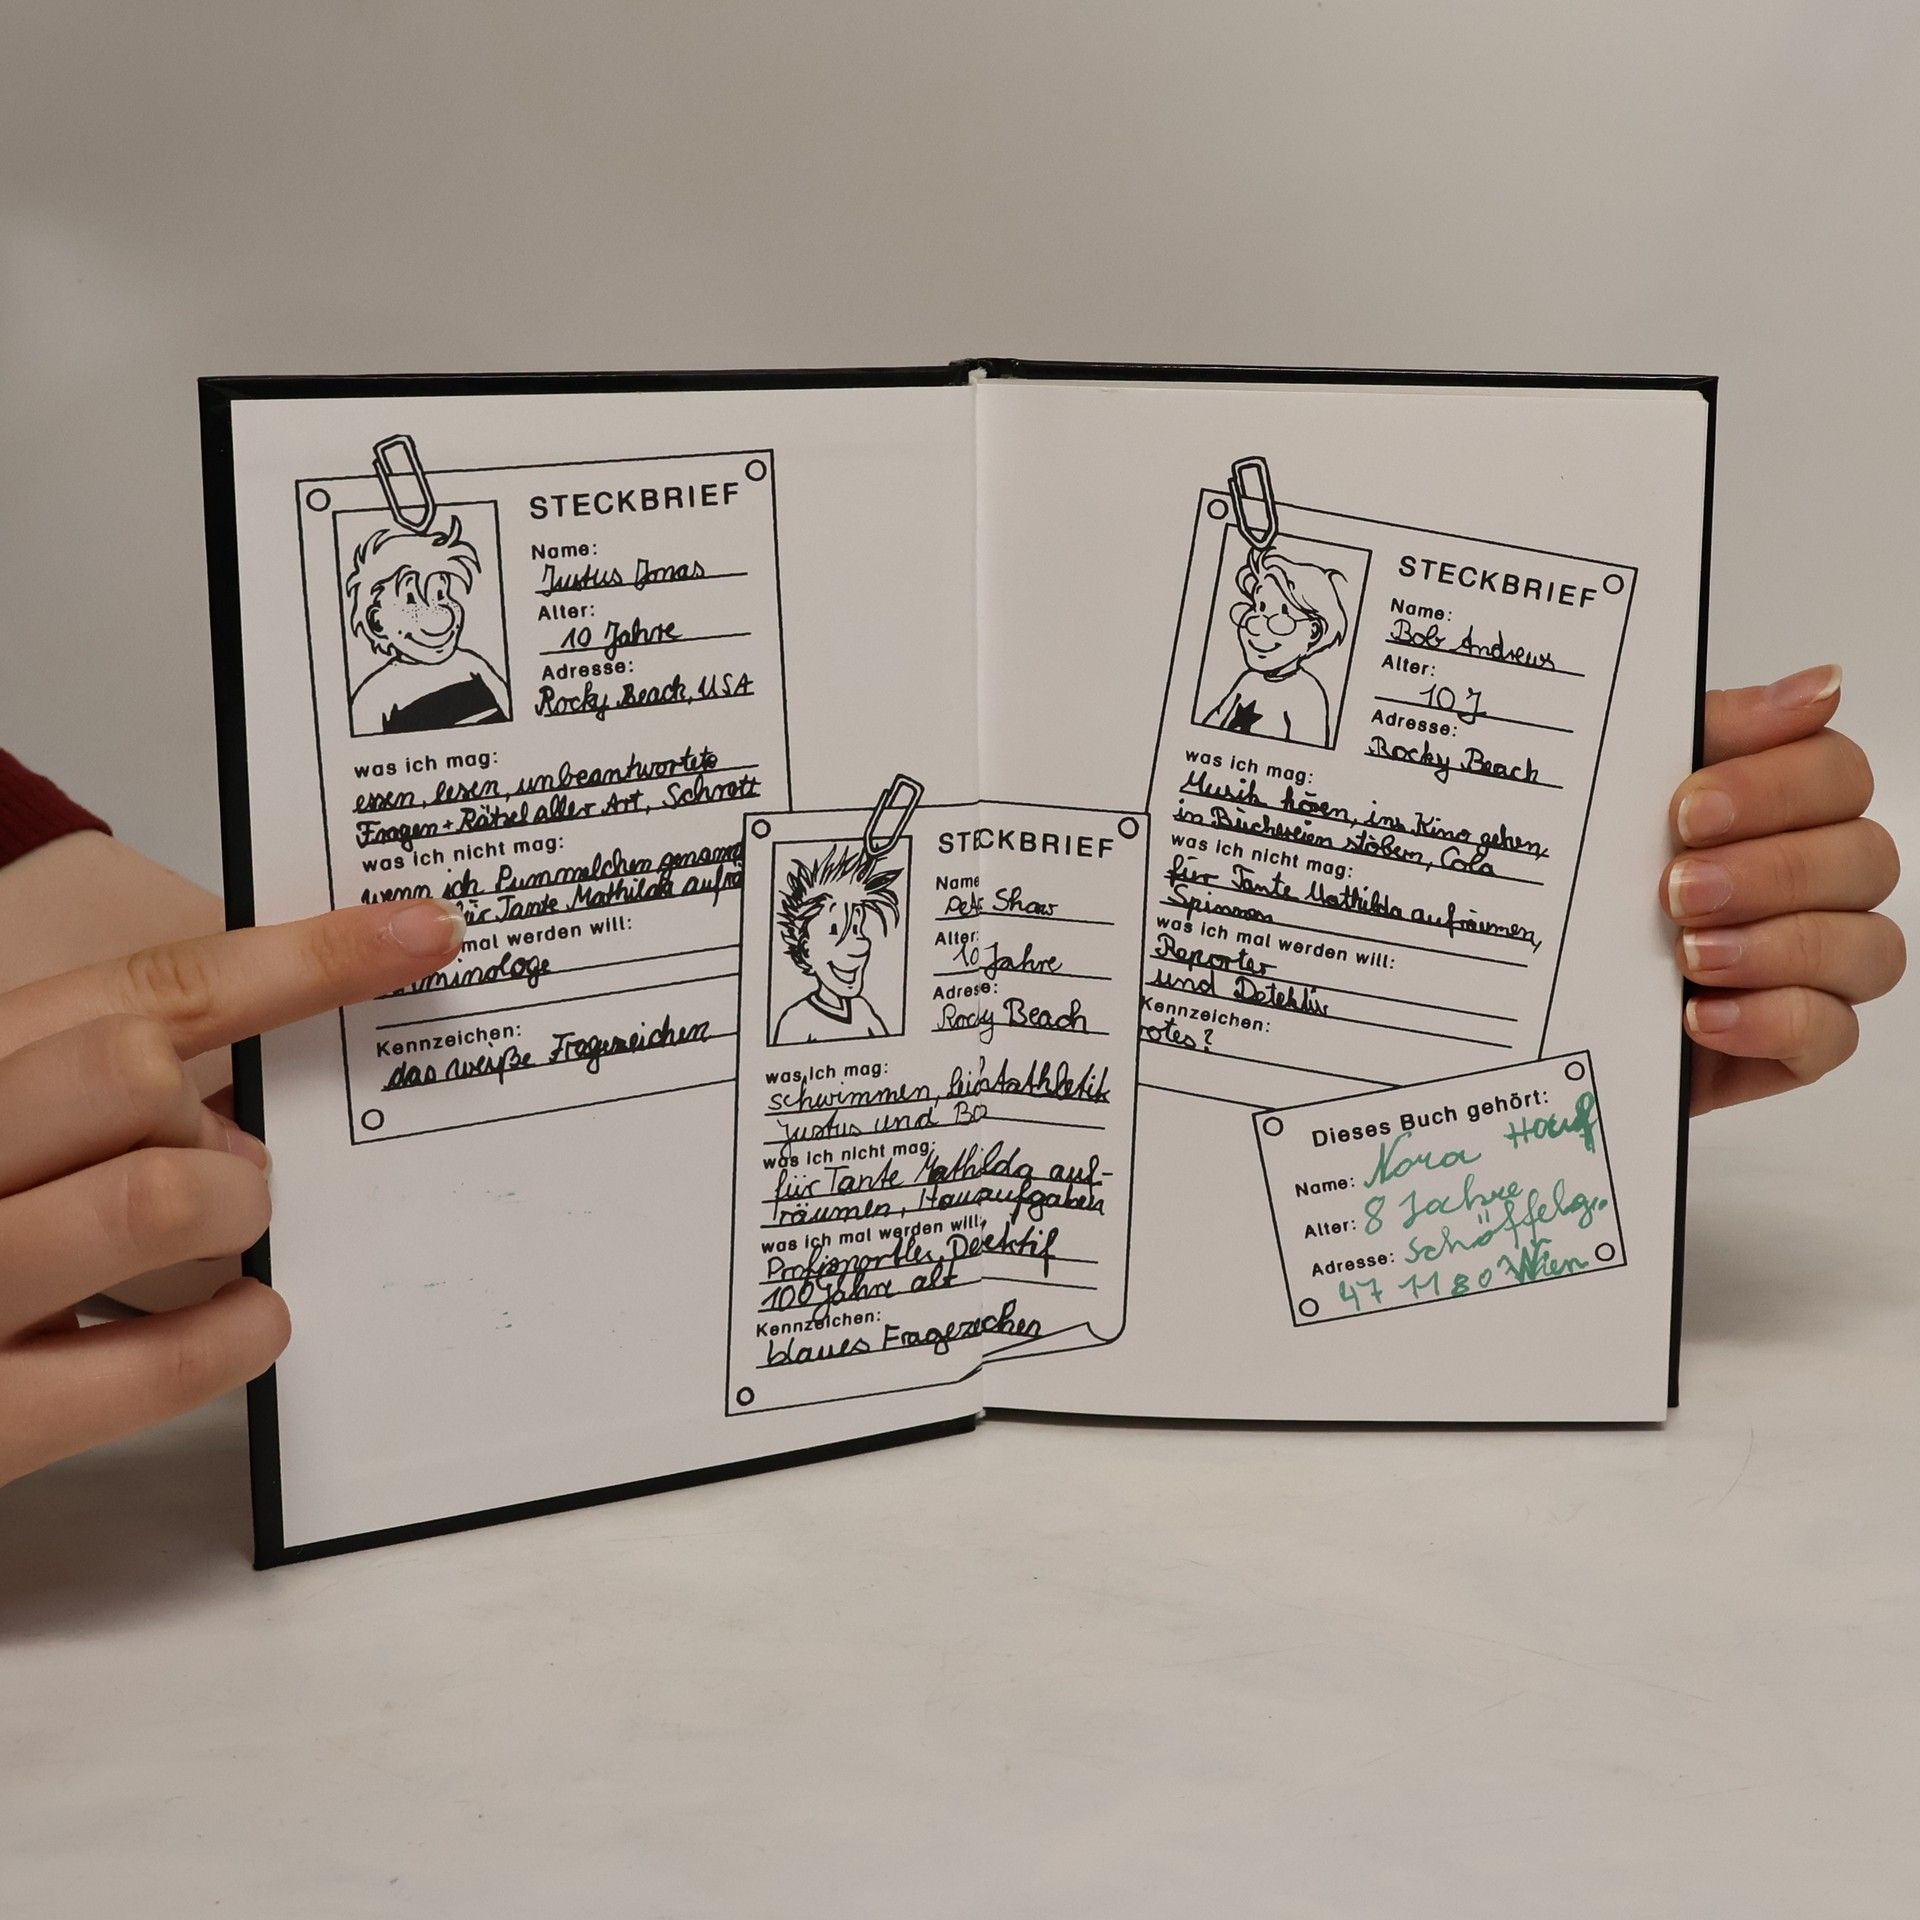 STECKBRIEF
Name:
Justus Jonas
Alter:
10 Jahre
Adresse:
Rocky Beach, USA
was ich mag:
essen, lesen, unbeantwortete
Fragen + Rätsel aller Art, Schrott
was ich nicht mag:
wenn ich Pummelchen genannt
für Tante Mathilda aufrä
mal werden will:
minologe
Kennzeichen:
das weiße Fragezeichen
STECKBRIEF
Name
Peter Shaw
Alter:
10 Jahre
Adresse:
Rocky Beach
was ich mag:
schwimmen, Leichtathletik
Justus und Bo
was ich nicht mag:
für Tante Mathilda auf-
räumen, Hausaufgaben
was ich mal werden will:
Profisportler, Detektiv
100 Jahre alt
Kennzeichen:
blaues Fragezeichen
STECKBRIEF
Name:
Bob Andrews
Alter:
10 J
Adresse:
Rocky Beach
was ich mag:
Musik hören, ins Kino gehen,
in Büchereien stöbern, Cola
was ich nicht mag:
für Tante Mathilda aufräumen,
Spinnen
was ich mal werden will:
Reporter
und Detektiv
Kennzeichen:
rotes ?
Dieses Buch gehört:
Name: Nora
Alter: 8 Jahre
Adresse: Schöffelg.
47 1180 Wien